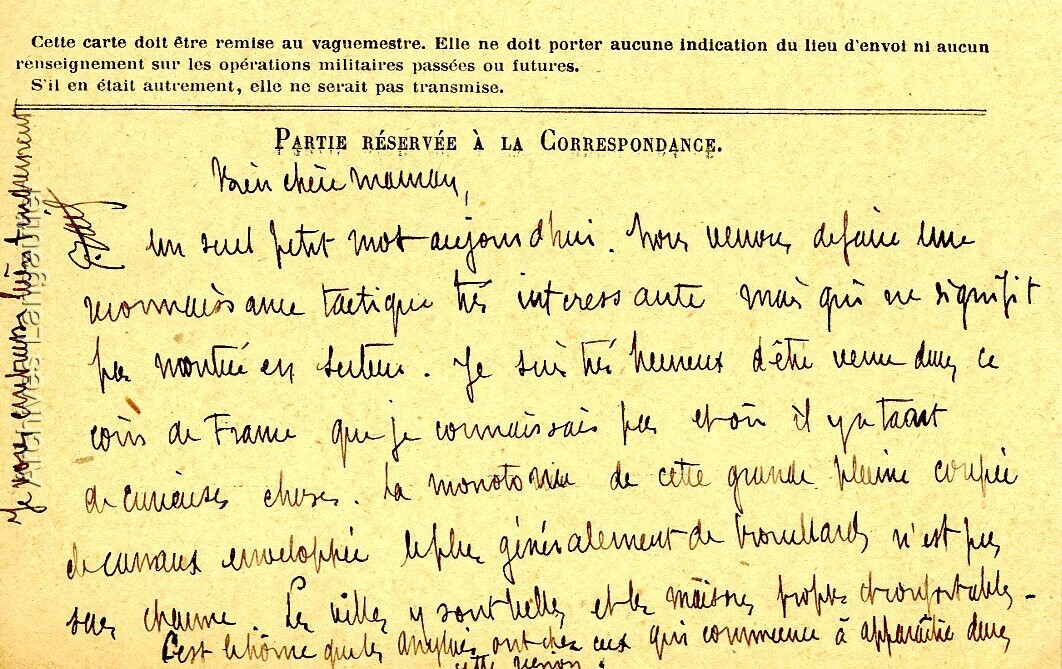 Cette carte doit être remise au vaguemestre. Elle ne doit porter aucune indication du lieu d'envoi ni aucun
renseignement sur les opérations militaires passées ou futures.
S'il en était autrement, elle ne serait pas transmise.
PARTIE RÉSERVÉE À LA CORRESPONDANCE.
Bien chère maman,
Un seul petit mot aujourd'hui. Nous venons de faire une
reconnaissance tactique très interessante mais qui ne signifit
pas montée en secteur. Je suis très heureux d'être venu dans ce
coin de France que je connaissais pas et où il y a tant
de curieuses choses. La monotonie de cette grande plaine coupée
de canaux enveloppée le plus généralement de brouillards n'est pas
sans charme. Les villes y sont belles et les maisons propres et confortables -
C'est le hôme que les Anglais ont chez eux qui commence à apparaître dans
cette région.
Je vous embrasse bien tendrement
Archives Langautier